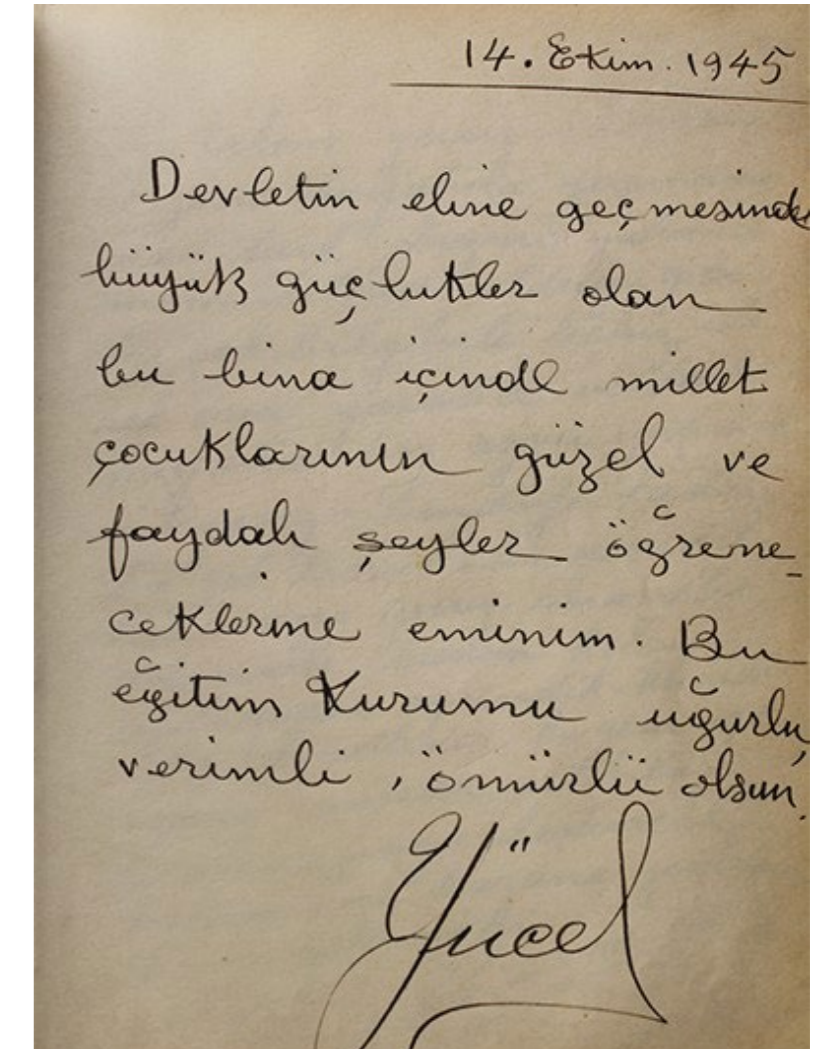 14. Ekim. 1945
Devletin eline geçmesinde
büyük güçlükler olan
bu bina içinde millet
çocuklarının güzel ve
faydalı şeyler öğrene-
ceklerine eminim. Bu
eğitim Kurumu uğurlu,
verimli, ömürlü olsun.
Yücel